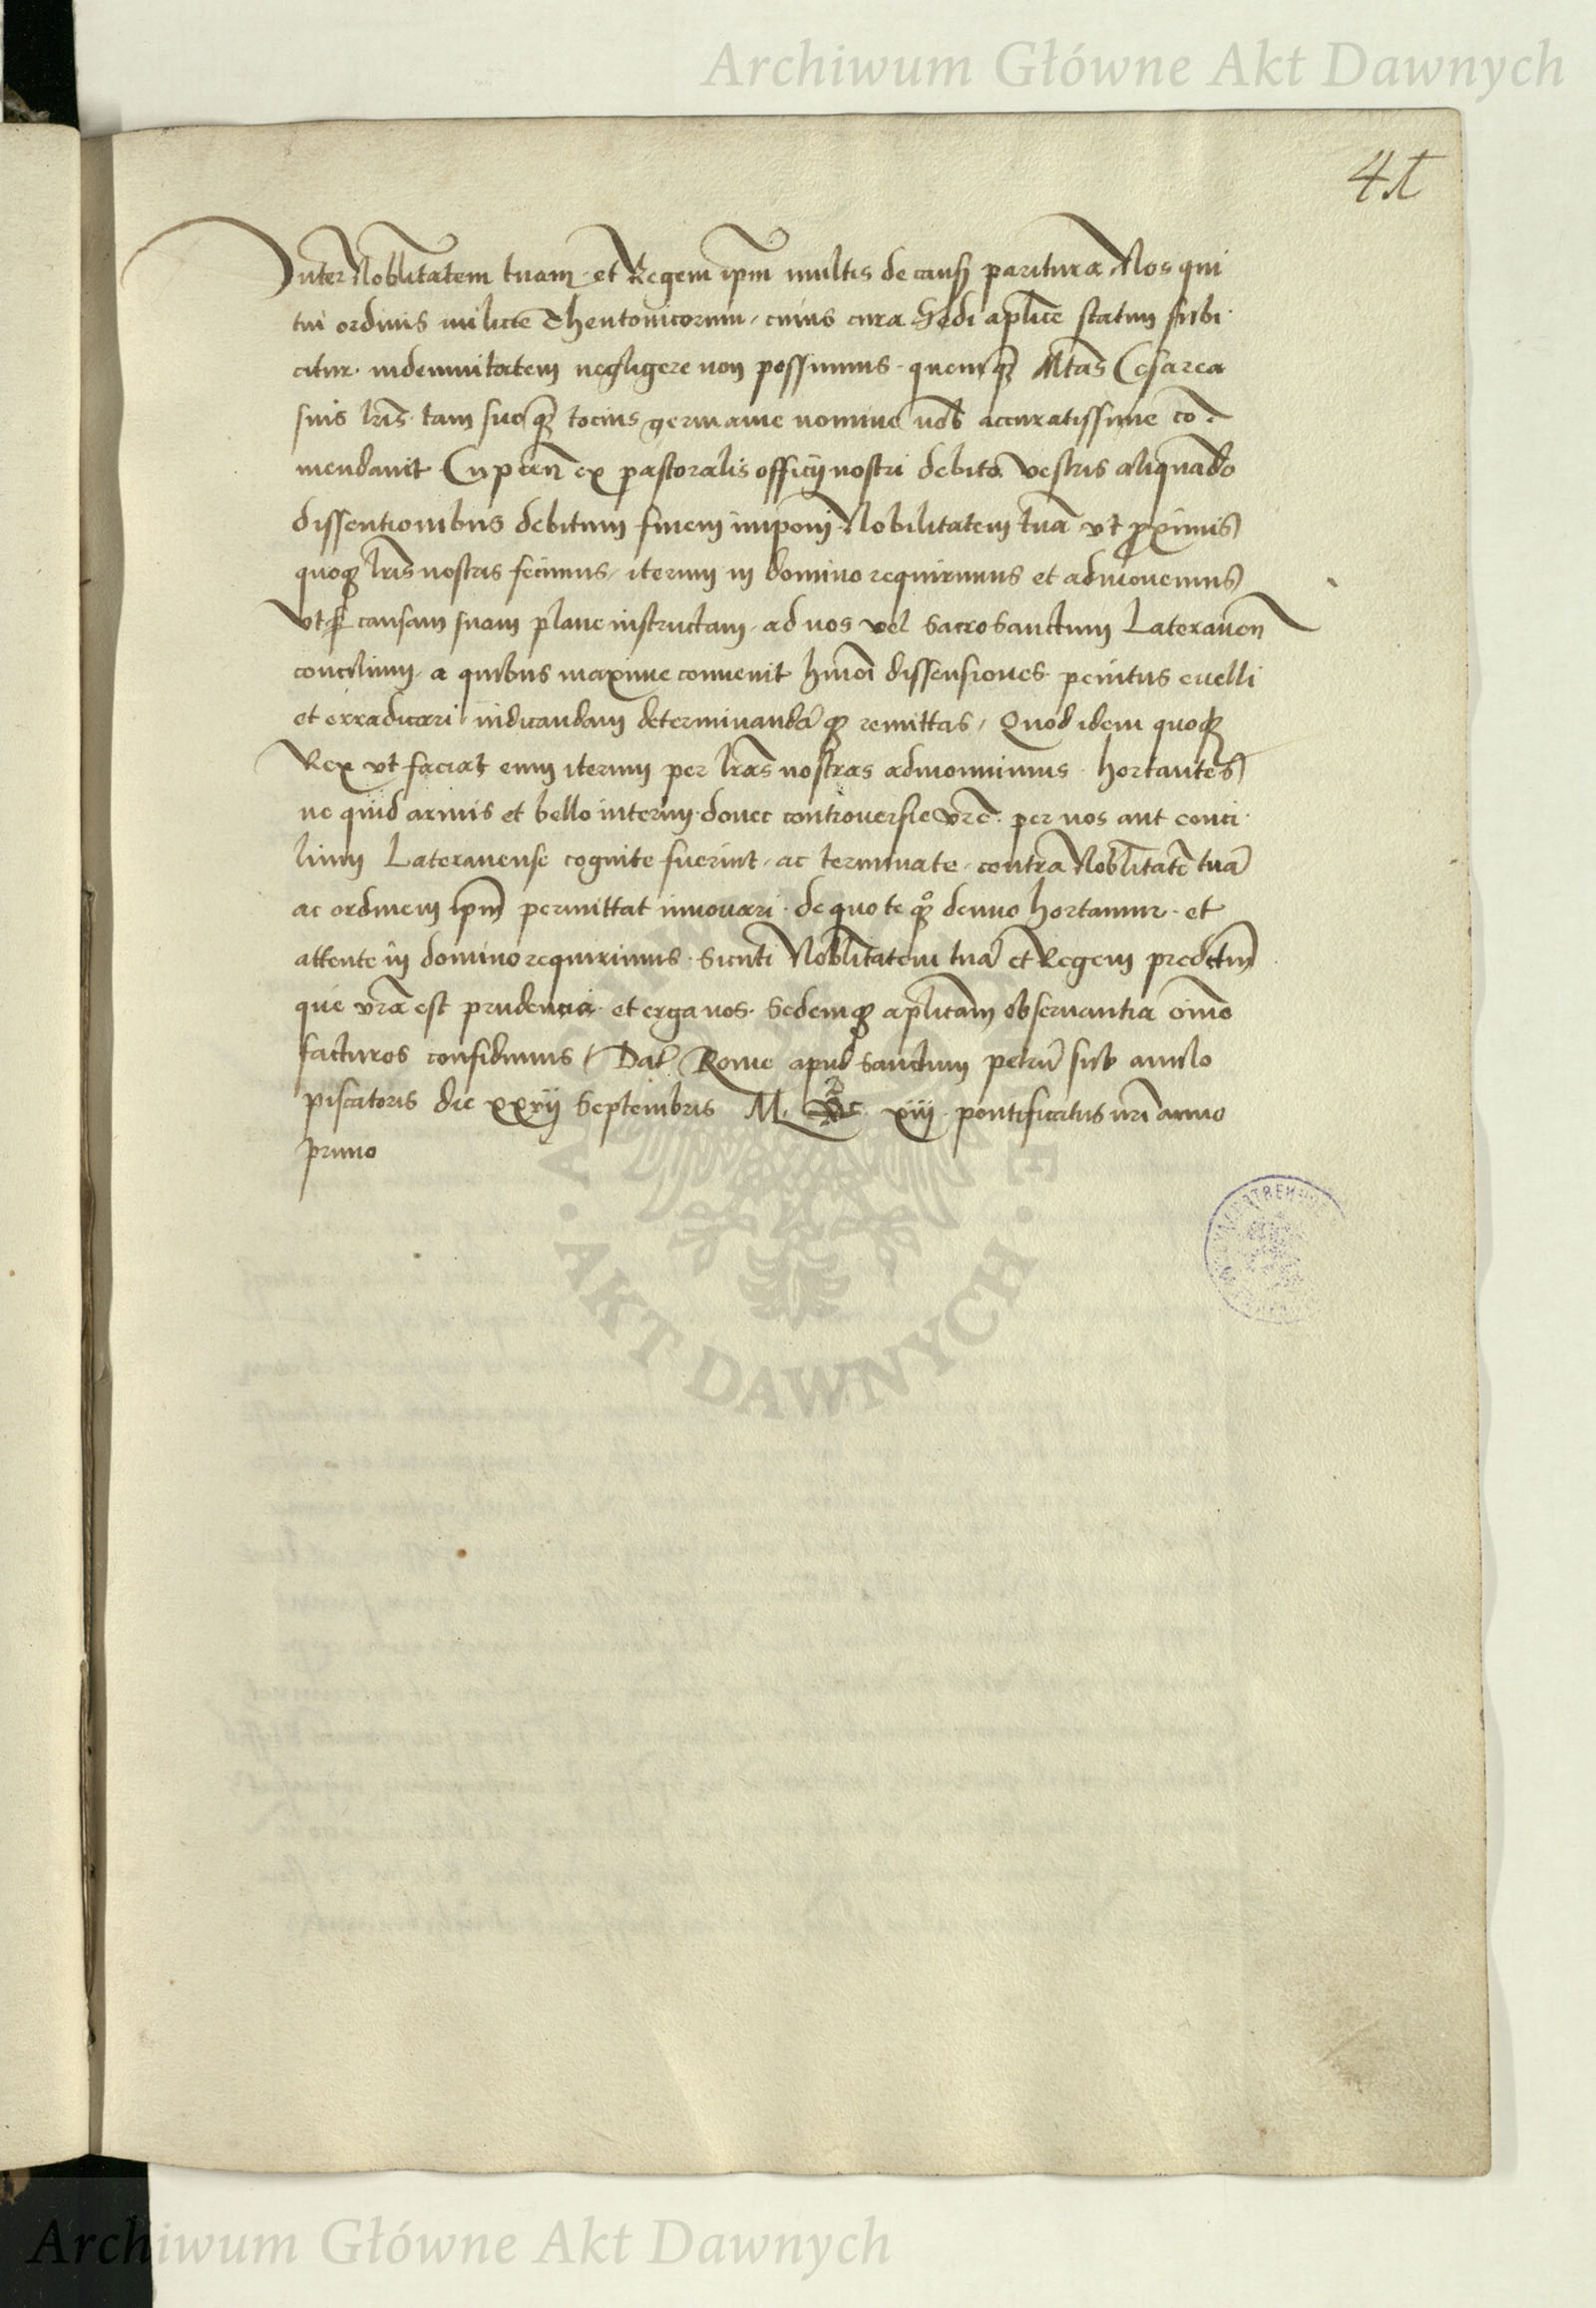 Archiwum Główne Akt Dawnych
41
Inter Noblitatem tuam et Regem ipm multis de caus paritura Nos qui
tui ordinis militie Thentonicorum, cuius cura Sedi aplice statim subi
citur indemnitatem negligere non possumus quemq Mtas Cesarea
suis lris tam suo q tocius germanie nomine nob accuratissime co
mendauit Cupien ex pastoralis officij nostri debito vestris aliquado
dissentionibus debitum finem imponi Nobilitatem tua vt proximis
quoq lris nostris fecimus, iterum in domino requirimus et admonemus
vt causam suam plane instructam, ad nos vel SacroSanctum Lateranen
concilium, a quibus maxime conuenit hmoi dissensiones penitus euelli
et erradicari iudicandam determinanda q remittas, Quod idem quoq
Rex vt faciat eum iterum per lras nostras admonuimus hortantes
ne quid armis et bello interim donec controuersie vre per nos aut conci
lium Lateranense cognite fuerint, ac terminate, contra Noblitate tua
ac ordinem ipm permittat innouari de quo te qo denuo hortamur et
attente in domino requirimus Sicuti Noblitatem tua et Regem predctm
que vra est prudencia et erga nos Sedemq aplicam obseruantia omo
facturos confidimus / Dat Rome apud sanctum petru sub anulo
piscatoris die xxvij Septembris M. xiij pontificatus nri anno
primo
AKT DAWNYCH
Archiwum Główne Akt Dawnych